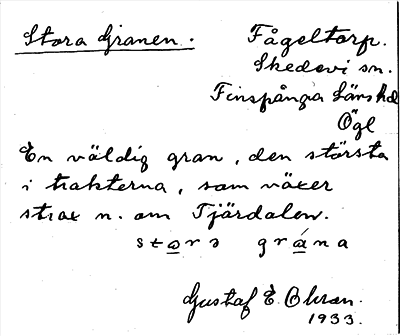 Stora Granen.
Fågeltorp.
Skedevi sn.
Finspånga Länshd
Ögl
En väldig gran, den största
i trakterna, som växer
strax n. om Tjärdalen.
storə gra&#769;na
Gustaf E.
1933.